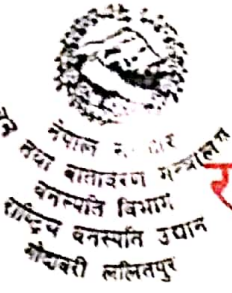 नेपाल
तथा वातावरण मन्त्रालय
वनस्पति विभाग
राष्ट्रिय वनस्पति उद्यान
गोदावरी ललितपुर